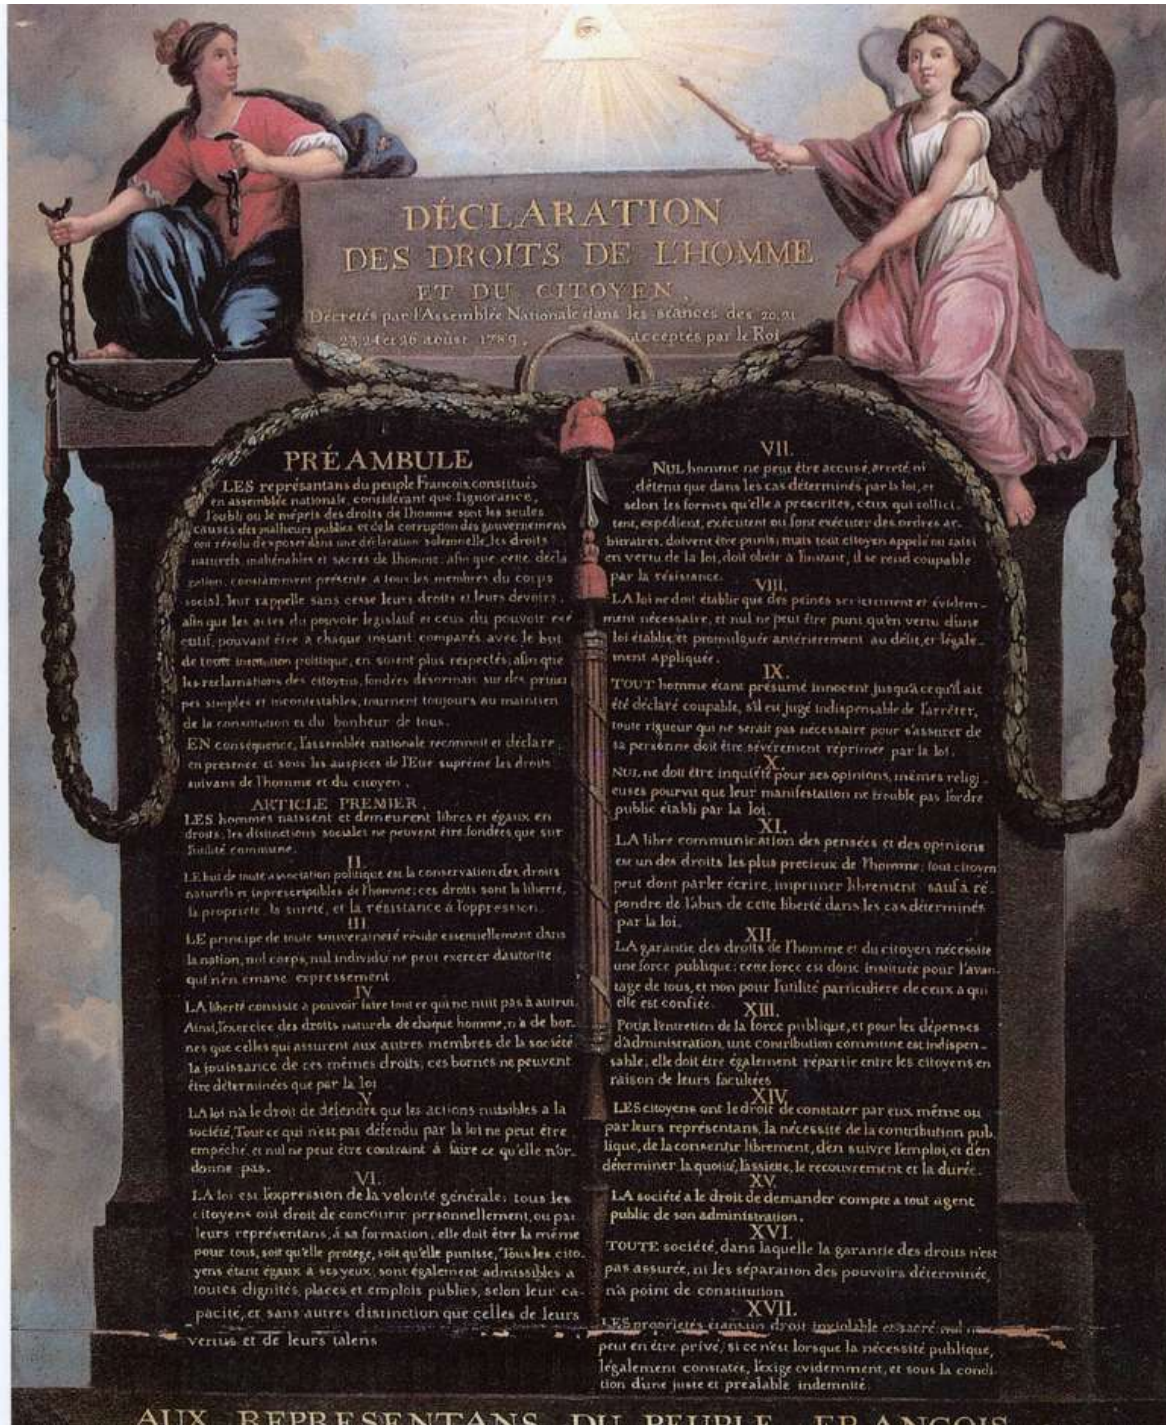 DÉCLARATION
DES DROITS DE L'HOMME
ET DU CITOYEN,
Décretés par l'Assemblée Nationale dans les séances des 20, 21
23, 24 et 26 aoust 1789, acceptés par le Roi
PRÉAMBULE
LES représantans du peuple Francois, constitués
en assemblée nationale, considérant que l'ignorance,
l'oubli ou le mépris des droits de l'homme sont les seules
causes des malheurs publics et de la corruption des gouvernemens
ont résolu d'exposer dans une déclaration solemnelle, les droits
naturels, inaliénables et sacrés de l'homme; afin que cette décla
ration, constamment présente a tous les membres du corps
social, leur rappelle sans cesse leurs droits et leurs devoirs,
afin que les actes du pouvoir legislatif et ceux du pouvoir exé
cutif, pouvant être a chaque instant comparés avec le but
de toute institution politique, en soient plus respectés; afin que
les reclamations des citoyens, fondées désormais sur des princi
pes simples et incontestables, tournent toujours au maintien
de la constitution et du bonheur de tous.
EN conséquence, l'assemblée nationale reconnoit et déclare,
en presence et sous les auspices de l'Etre suprême les droits
suivans de l'homme et du citoyen.
ARTICLE PREMIER.
LES hommes naissent et demeurent libres et égaux en
droits, les distinctions sociales ne peuvent être fondées que sur
l'utilité commune.
II.
LE but de toute association politique est la conservation des droits
naturels et inprescriptibles de l'homme; ces droits sont la liberté,
la propriété, la sureté, et la résistance à l'oppression.
III.
LE principe de toute souveraineté réside essentiellement dans
la nation, nul corps, nul individu ne peut exercer d'autorité
qui n'en emane expressement
IV
LA liberté consiste a pouvoir faire tout ce qui ne nuit pas à autrui.
Ainsi, l'exercice des droits naturels de chaque homme, n'a de bor-
nes que celles qui assurent aux autres membres de la société
la jouissance de ces mêmes droits; ces bornes ne peuvent
être déterminées que par la loi
V
LA loi n'a le droit de défendre que les actions nuisibles a la
société, Tout ce qui n'est pas défendu par la loi ne peut être
empeché, et nul ne peut être contraint à faire ce qu'elle n'or-
donne pas.
VI.
LA loi est l'expression de la volonté générale; tous les
citoyens ont droit de concourir personnellement, ou par
leurs représentans, à sa formation; elle doit être la même
pour tous, soit qu'elle protege, soit qu'elle punisse, Tous les cito-
yens étant égaux à ses yeux, sont également admissibles a
toutes dignités, places et emplois publics, selon leur ca-
pacité, et sans autres distinction que celles de leurs
vertus et de leurs talens
VII.
NUL homme ne peut être accusé, arreté, ni
détenu que dans les cas déterminés par la loi, et
selon les formes qu'elle a prescrites, ceux qui sollici-
tent, expédient, exécutent ou font exécuter des ordres ar-
bitraires, doivent être punis; mais tout citoyen appelé ou saisi
en vertu de la loi, doit obéir a l'instant, il se rend coupable
par la résistance.
VIII.
LA loi ne doit établir que des peines strictement et évidem-
ment nécessaire, et nul ne peut être puni qu'en vertu d'une
loi établie et promulguée antérieurement au délit, et légale-
ment appliquée.
IX.
TOUT homme étant présumé innocent jusqu'a ce qu'il ait
été déclaré coupable, s'il est jugé indispensable de l'arrêter,
toute rigueur qui ne serait pas nécessaire pour s'assurer de
sa personne doit être sévérement réprimer par la loi.
X.
NUL ne doit être inquiété pour ses opinions, mêmes religi
euses pourvu que leur manifestation ne trouble pas l'ordre
public établi par la loi.
XI.
LA libre communication des pensées et des opinions
est un des droits les plus precieux de l'homme; tout citoyen
peut dont parler écrire, imprimer librement sauf à ré
pondre de l'abus de cette liberté dans les cas déterminés
par la loi.
XII.
LA garantie des droits de l'homme et du citoyen nécessite
une force publique; cette force est donc instituée pour l'avan
tage de tous, et non pour l'utilité particuliere de ceux a qui
elle est confiée.
XIII.
POUR l'entretien de la force publique, et pour les dépenses
d'administration, une contribution commune est indispen-
sable; elle doit être également répartie entre les citoyens en
raison de leurs facultées
XIV.
LES citoyens ont le droit de constater par eux même ou
par leurs représentans, la nécessité de la contribution pub-
lique, de la consentir librement, d'en suivre l'emploi, et d'en
déterminer la quotité, l'assiette, le recouvrement et la durée.
XV.
LA société a le droit de demander compte a tout agent
public de son administration.
XVI.
TOUTE société, dans laquelle la garantie des droits n'est
pas assurée, ni les séparation des pouvoirs déterminée,
n'a point de constitution
XVII.
LES proprietés étant un droit inviolable et sacré, nul ne
peut en être privé, si ce n'est lorsque la nécessité publique,
légalement constatée, l'exige evidemment, et sous la condi-
tion d'une juste et prealable indemnité.
AUX REPRESENTANS DU PEUPLE FRANCOIS